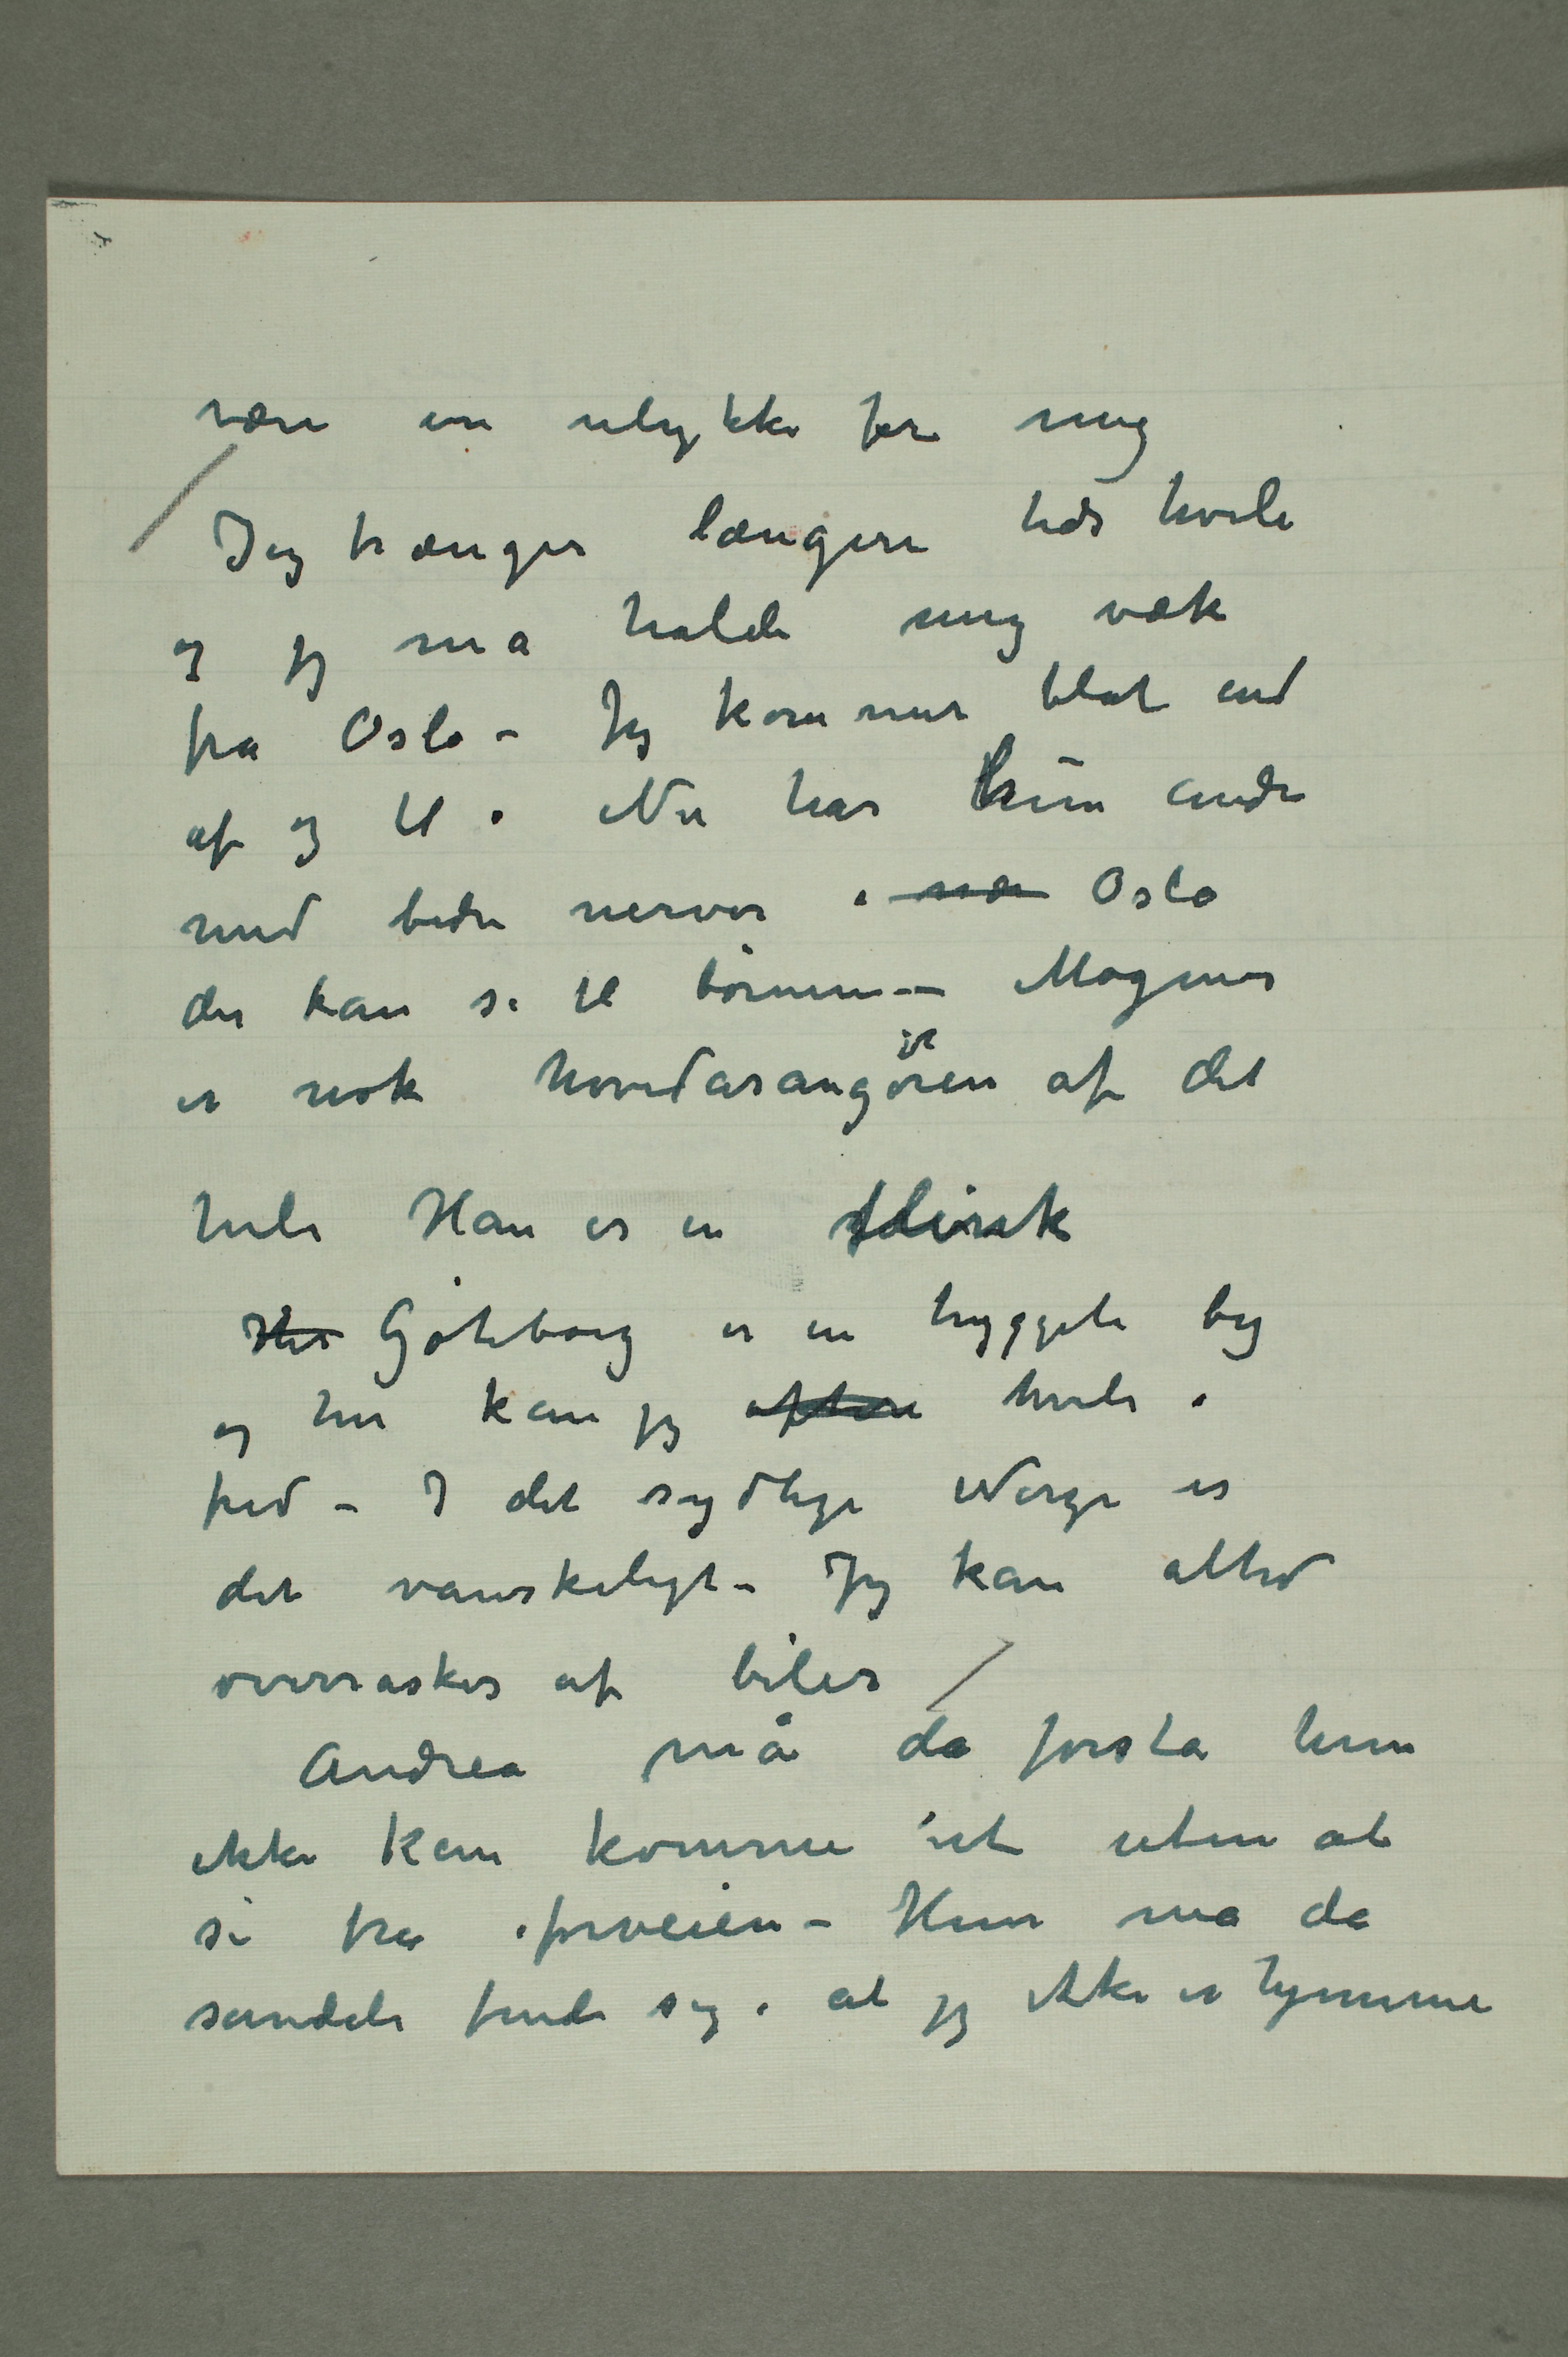 være en ulykke for mig
Jeg trænger længere tids hvile
og jeg ma holde mig væk
fra Oslo – Jeg kommer blot ind
af og til. Nu har hun andre
med bedre nerver i nær Oslo
der kan se til börnene – Magnus
er nok hovedarangören af det
hele Han er en flink
Her Göteborg er en hyggeli by
og her kan jeg oftere hvile i
fred – I det sydlige Norge er
det vanskeligt – Jeg kan altid
overraskes af biler
Andrea må da forsta hun
ikke kan komme ut uten at
si fra iforveien – Hun ma da
sandeli finde sig i at jeg ikke er hjemme